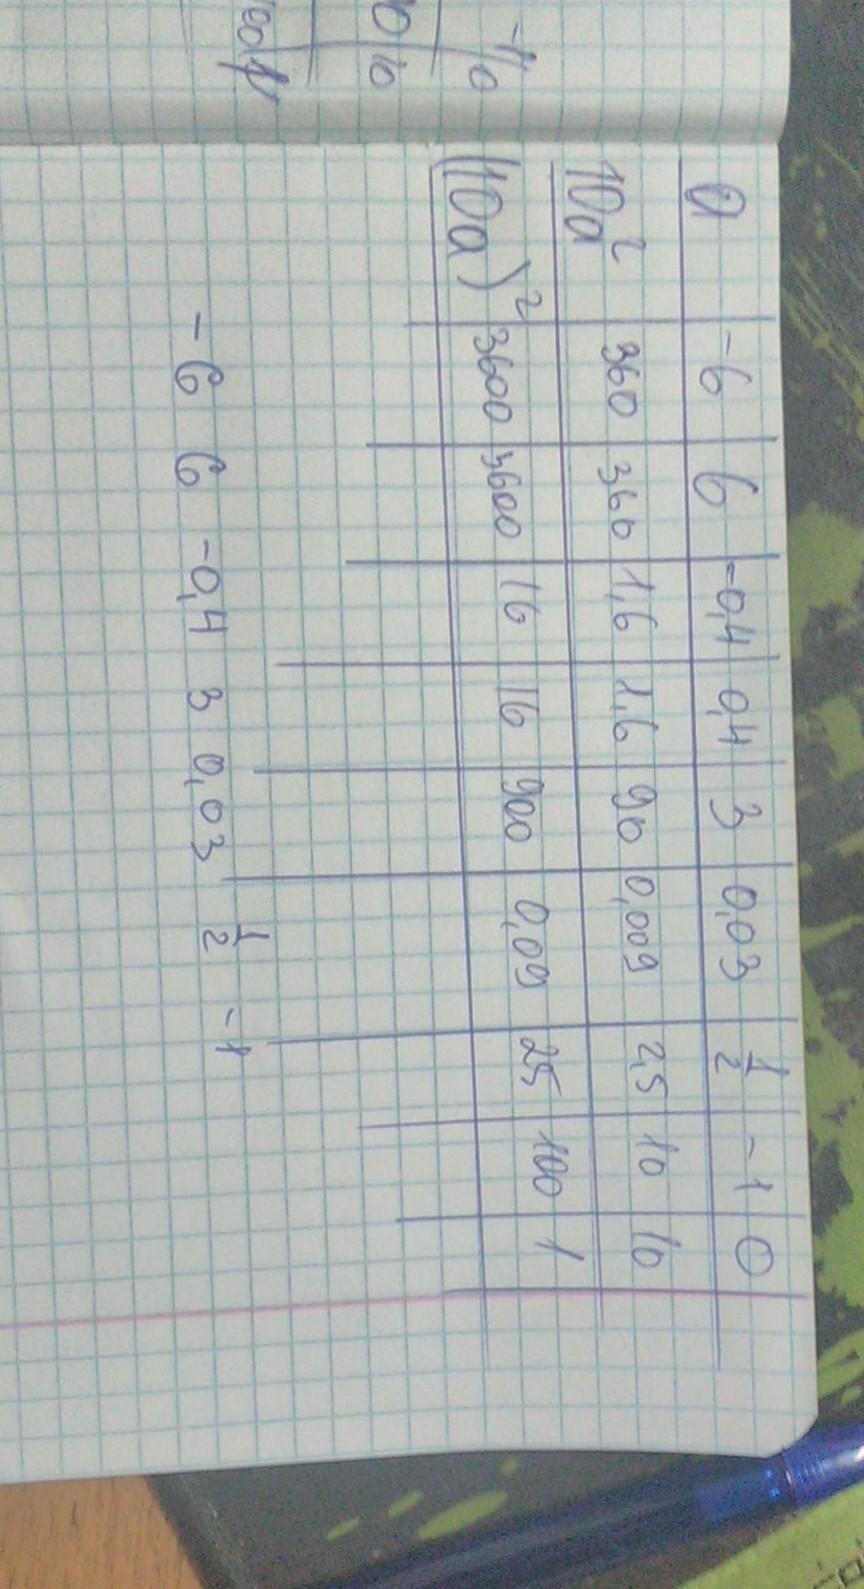 a -6 6 -0,4 0,4 3 0,03 1/2 -1 0
10a² 360 360 1,6 1,6 90 0,009 2,5 10 10
(10a)² 3600 3600 16 16 900 0,09 25 100 1
-6 6 -0,4 3 0,03 1/2 -1